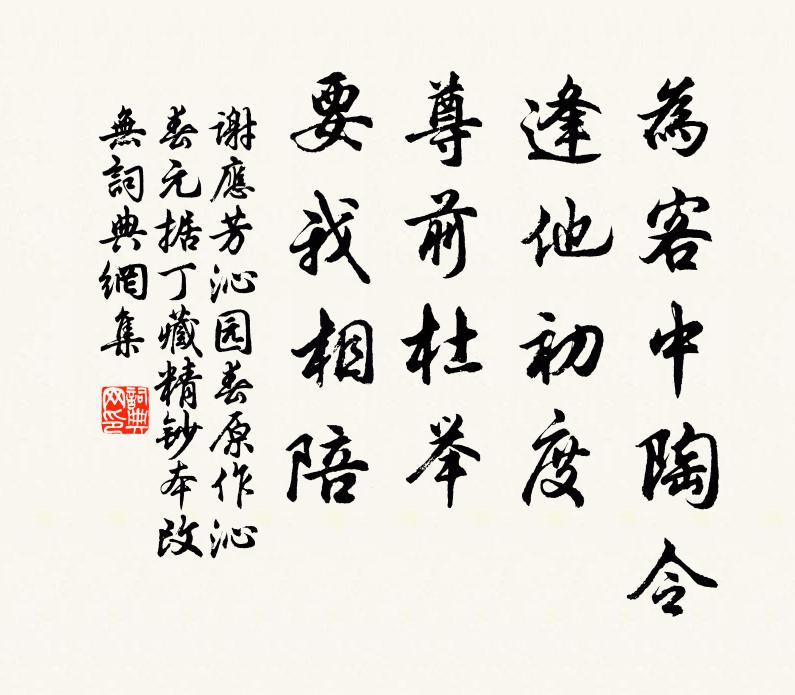 為客中陶令
逢他初度
尊前杜举
要我相陪
谢應芳沁园春原作沁
春元据丁藏精鈔本改
無詞典網集
詞典網印